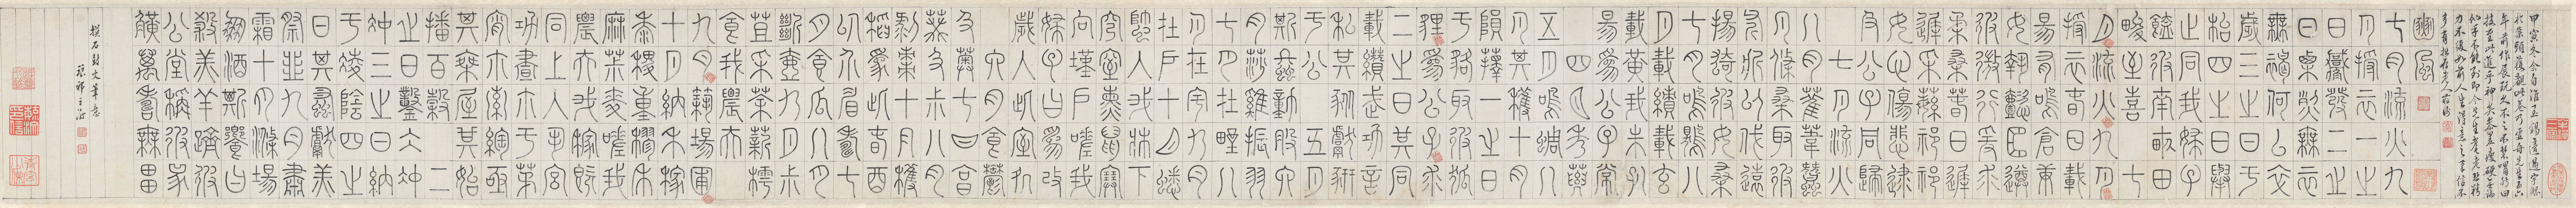 豳風
七月流火九
月授衣一之
日觱發二之
日栗烈無衣
無褐何以卒
歲三之日于
耜四之日舉
止同我婦子
饁彼南畝田
畯至喜七
月流火九月
授衣春日載
陽有鳴倉庚
女執懿筐遵
彼微行爰求
柔桑春日遲
遲采蘩祁祁
女心傷悲殆
及公子同歸
七月流火
八月萑葦蠶
月條桑取彼
斧斨以伐遠
揚猗彼女桑
七月鳴鵙八
月載績載玄
載黃我朱孔
陽為公子裳
四月秀葽
五月鳴蜩八
月其穫十月
隕蘀一之日
于貉取彼狐
狸為公子裘
二之日其同
載纘武功言
私其豵獻豜
于公五月
斯螽動股六
月莎雞振羽
七月在野八
月在宇九月
在戶十月蟋
蟀入我牀下
穹窒熏鼠塞
向墐戶嗟我
婦子曰為改
歲入此室處
六月食鬱
及薁七月亨
葵及菽八月
剝棗十月穫
稻為此春酒
以介眉壽七
月食瓜八月
斷壺九月叔
苴采荼薪樗
食我農夫
九月築場圃
十月納禾稼
黍稷重穋禾
麻菽麥嗟我
農夫我稼既
同上入執宮
功晝爾于茅
宵爾索綯亟
其乘屋其始
播百穀二
之日鑿冰沖
沖三之日納
于凌陰四之
日其蚤獻羔
祭韭九月肅
霜十月滌場
朋酒斯饗曰
殺羔羊躋彼
公堂稱彼兕
觥萬壽無疆
石鼓文筆意